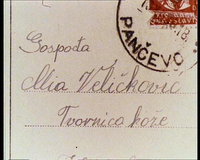 PANČEVO
Gospođa
Mia Veličković
Tvornica kože